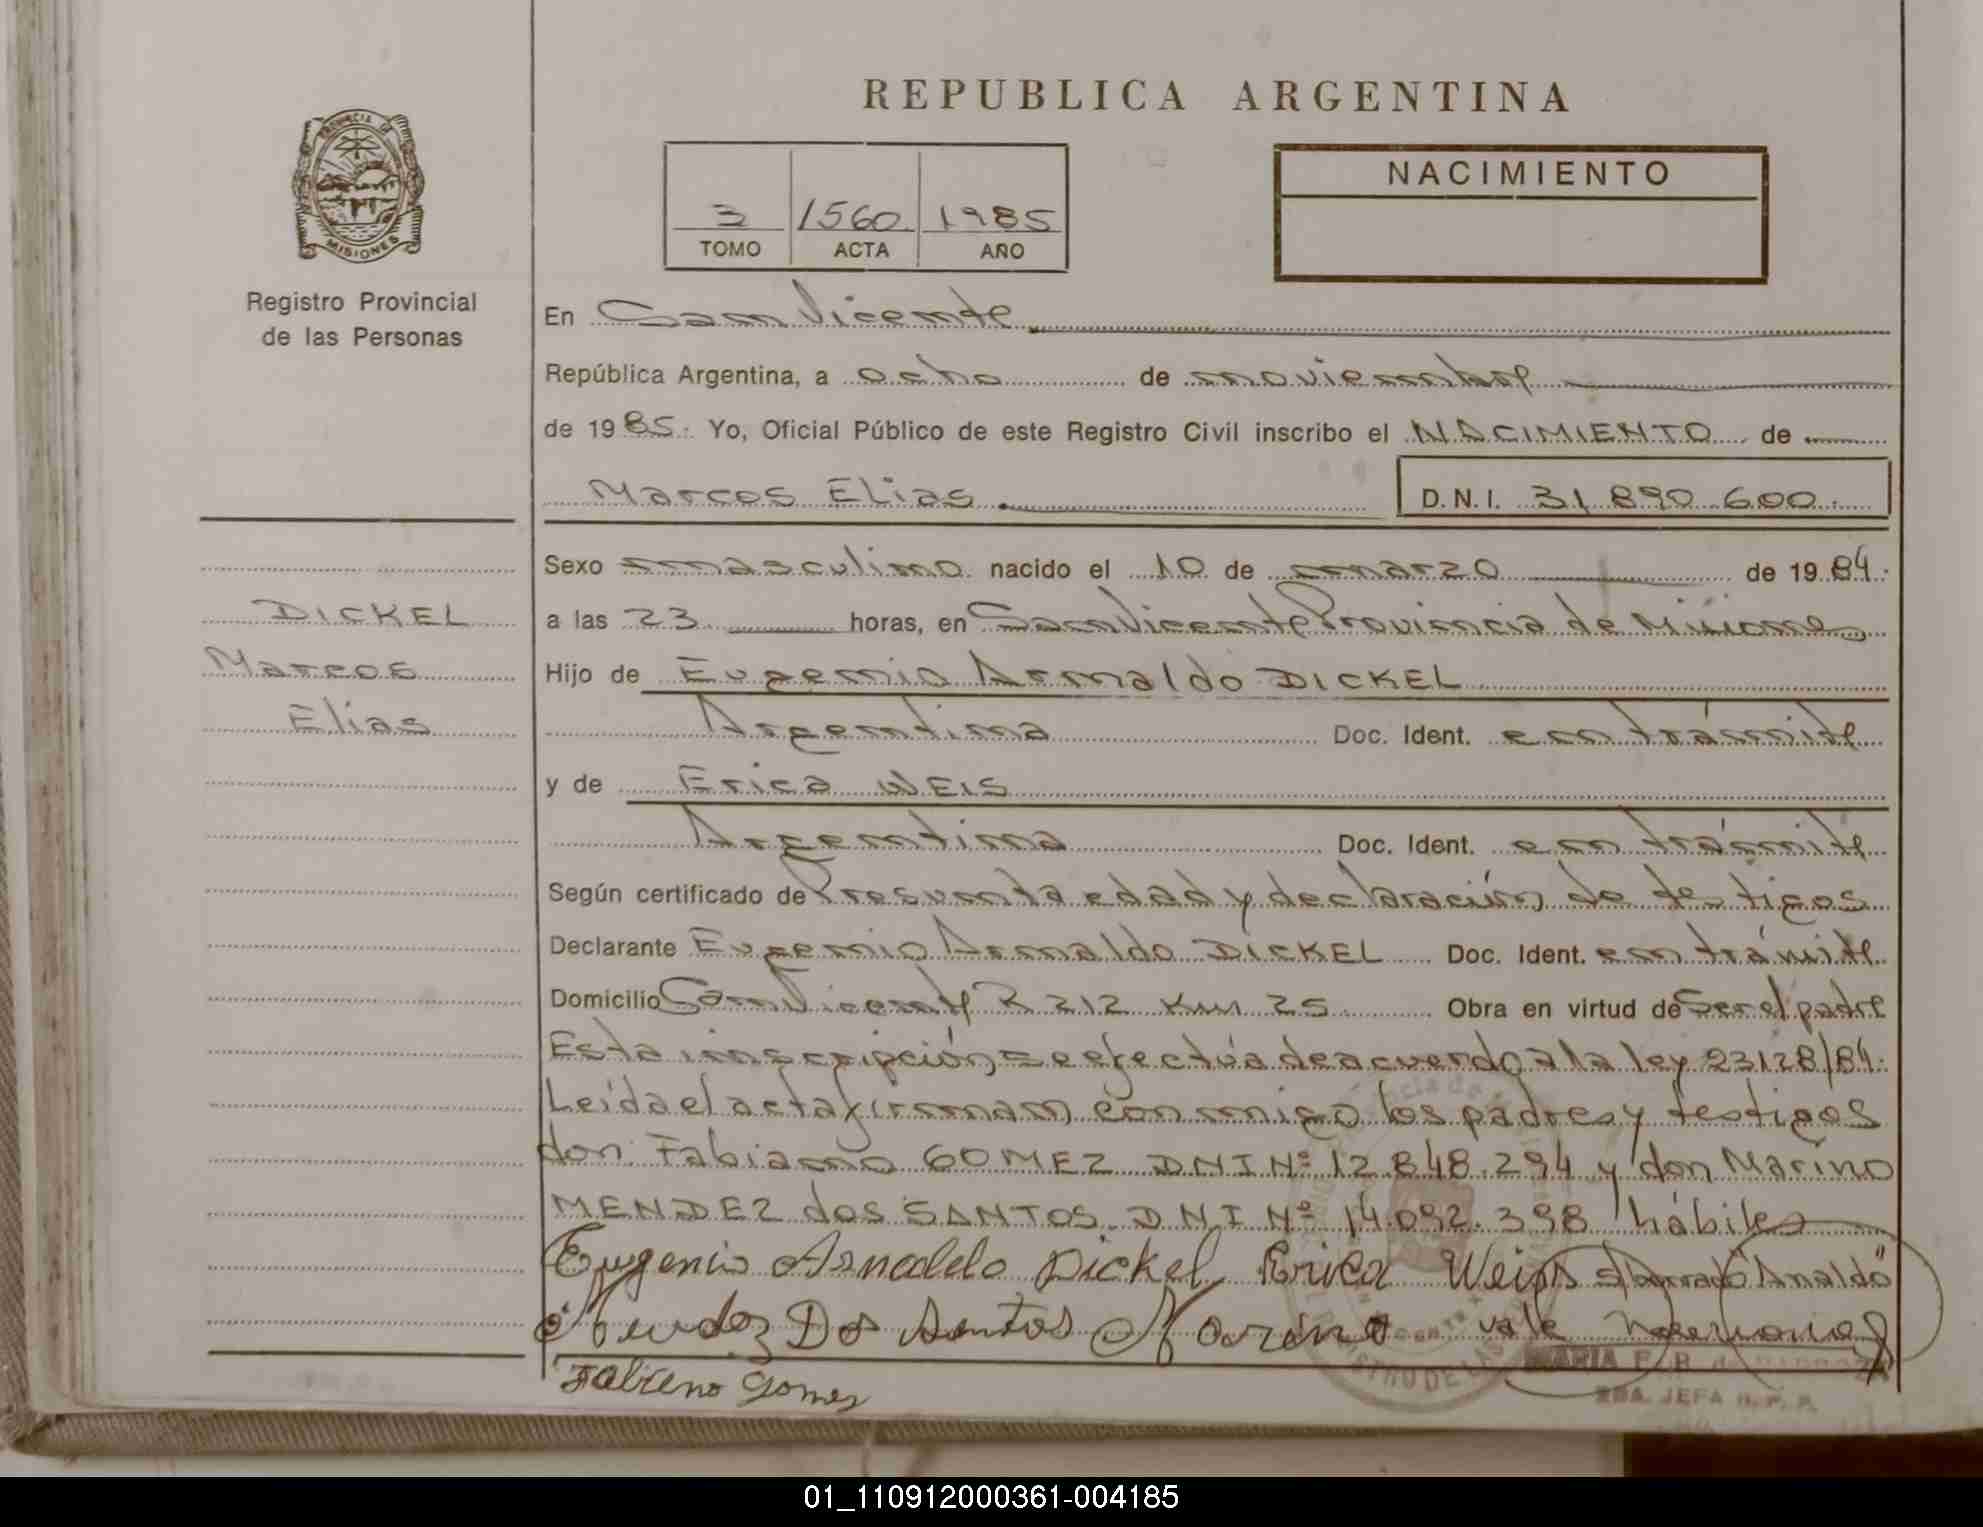 REPUBLICA ARGENTINA
PROVINCIA DE
MISIONES
Registro Provincial
de las Personas
3 1560 1985
TOMO ACTA AÑO
NACIMIENTO
En San Vicente
República Argentina, a ocho de noviembre
de 1985. Yo, Oficial Público de este Registro Civil inscribo el NACIMIENTO de
Marcos Elias D.N.I. 31 890 600.
DICKEL
Marcos
Elias
Sexo masculino nacido el 10 de marzo de 1984.
a las 23 horas, en San Vicente Provincia de Misiones
Hijo de Eugenio Arnaldo DICKEL
Argentina Doc. Ident. en trámite
y de Erica WEIS
Argentina Doc. Ident. en trámite
Según certificado de Presunta edad y declaración de testigos
Declarante Eugenio Arnaldo DICKEL Doc. Ident. en trámite
Domicilio San Vicente R 212 Km 25 Obra en virtud de Ser el padre
Esta inscripción se efectúa de acuerdo a la ley 23128/84.
Leída el acta firman conmigo los padres y testigos
don: Fabiano GOMEZ DNI Nº 12.848.294 y don Marino
MENDEZ dos SANTOS DNI Nº 14.092.398 hábiles
Eugenio Arnaldo Dickel Erica Weiss s/borrado "Arnaldo"
Mendez Dos Santos Marino vale
Fabieno Gomez
MARIA E. R.
JEFA R. P. P.
01_110912000361-004185